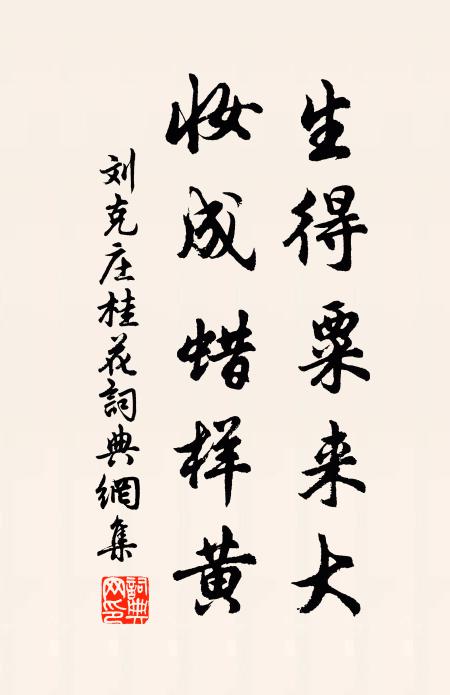 生得粟来大
妆成蜡样黄
刘克庄桂花詞典網集
詞典
网印